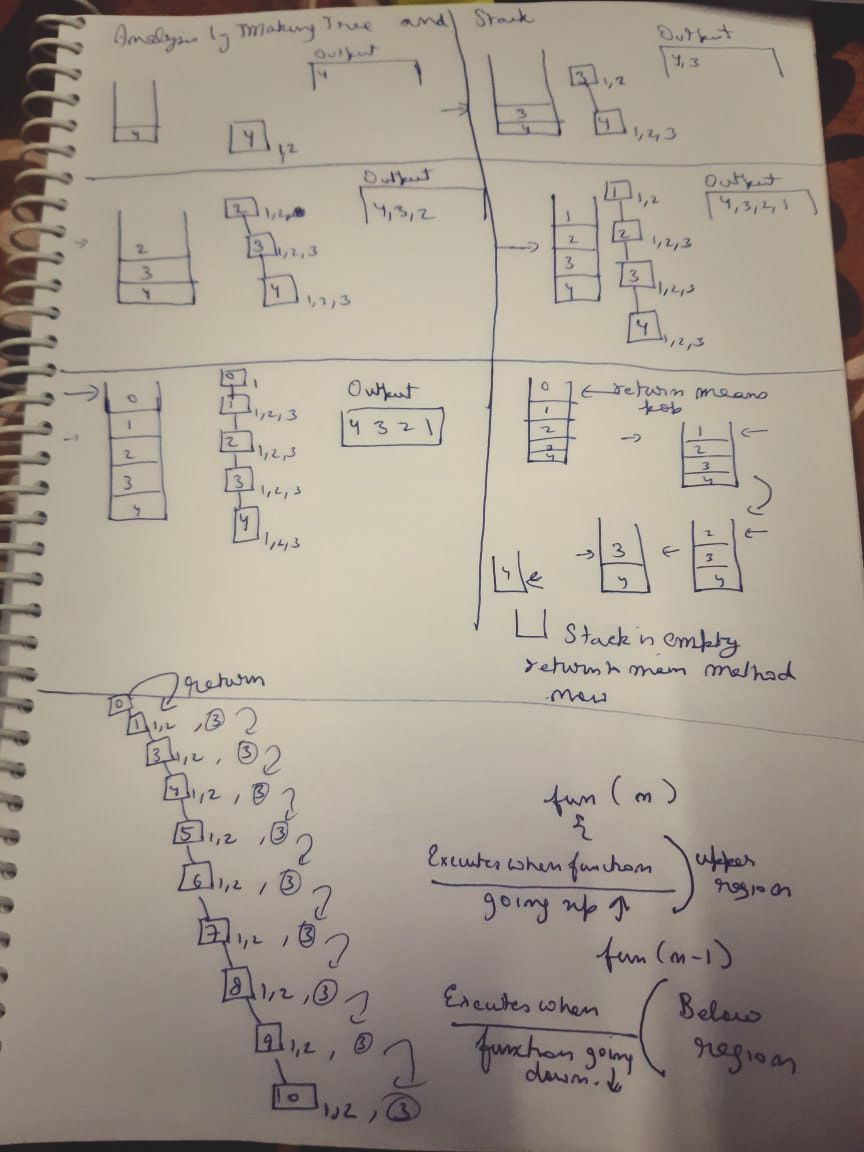 Analysis by Making Tree and Stack
Output
4
4
4
1,2
Output
4,3
3
4
3
1,2
4
1,2,3
Output
4,3,2
2
3
4
2
1,2
3
1,2,3
4
1,2,3
Output
4,3,2,1
1
2
3
4
1
1,2
2
1,2,3
3
1,2,3
4
1,2,3
Output
4 3 2 1
0
1
2
3
4
0
1
1
1,2,3
2
1,2,3
3
1,2,3
4
1,2,3
return means
pop
0
1
2
3
4
1
2
3
4
2
3
4
3
4
4
Stack is empty
return to main method
now
return
0
1 1,2 , 3
3 1,2 , 3
4 1,2 , 3
5 1,2 , 3
6 1,2 , 3
7 1,2 , 3
8 1,2 , 3
9 1,2 , 3
10 1,2 , 3
fun (n)
{
Executes when function
going up ↑
upper
region
fun (n-1)
Executes when
function going
down. ↓
Below
region